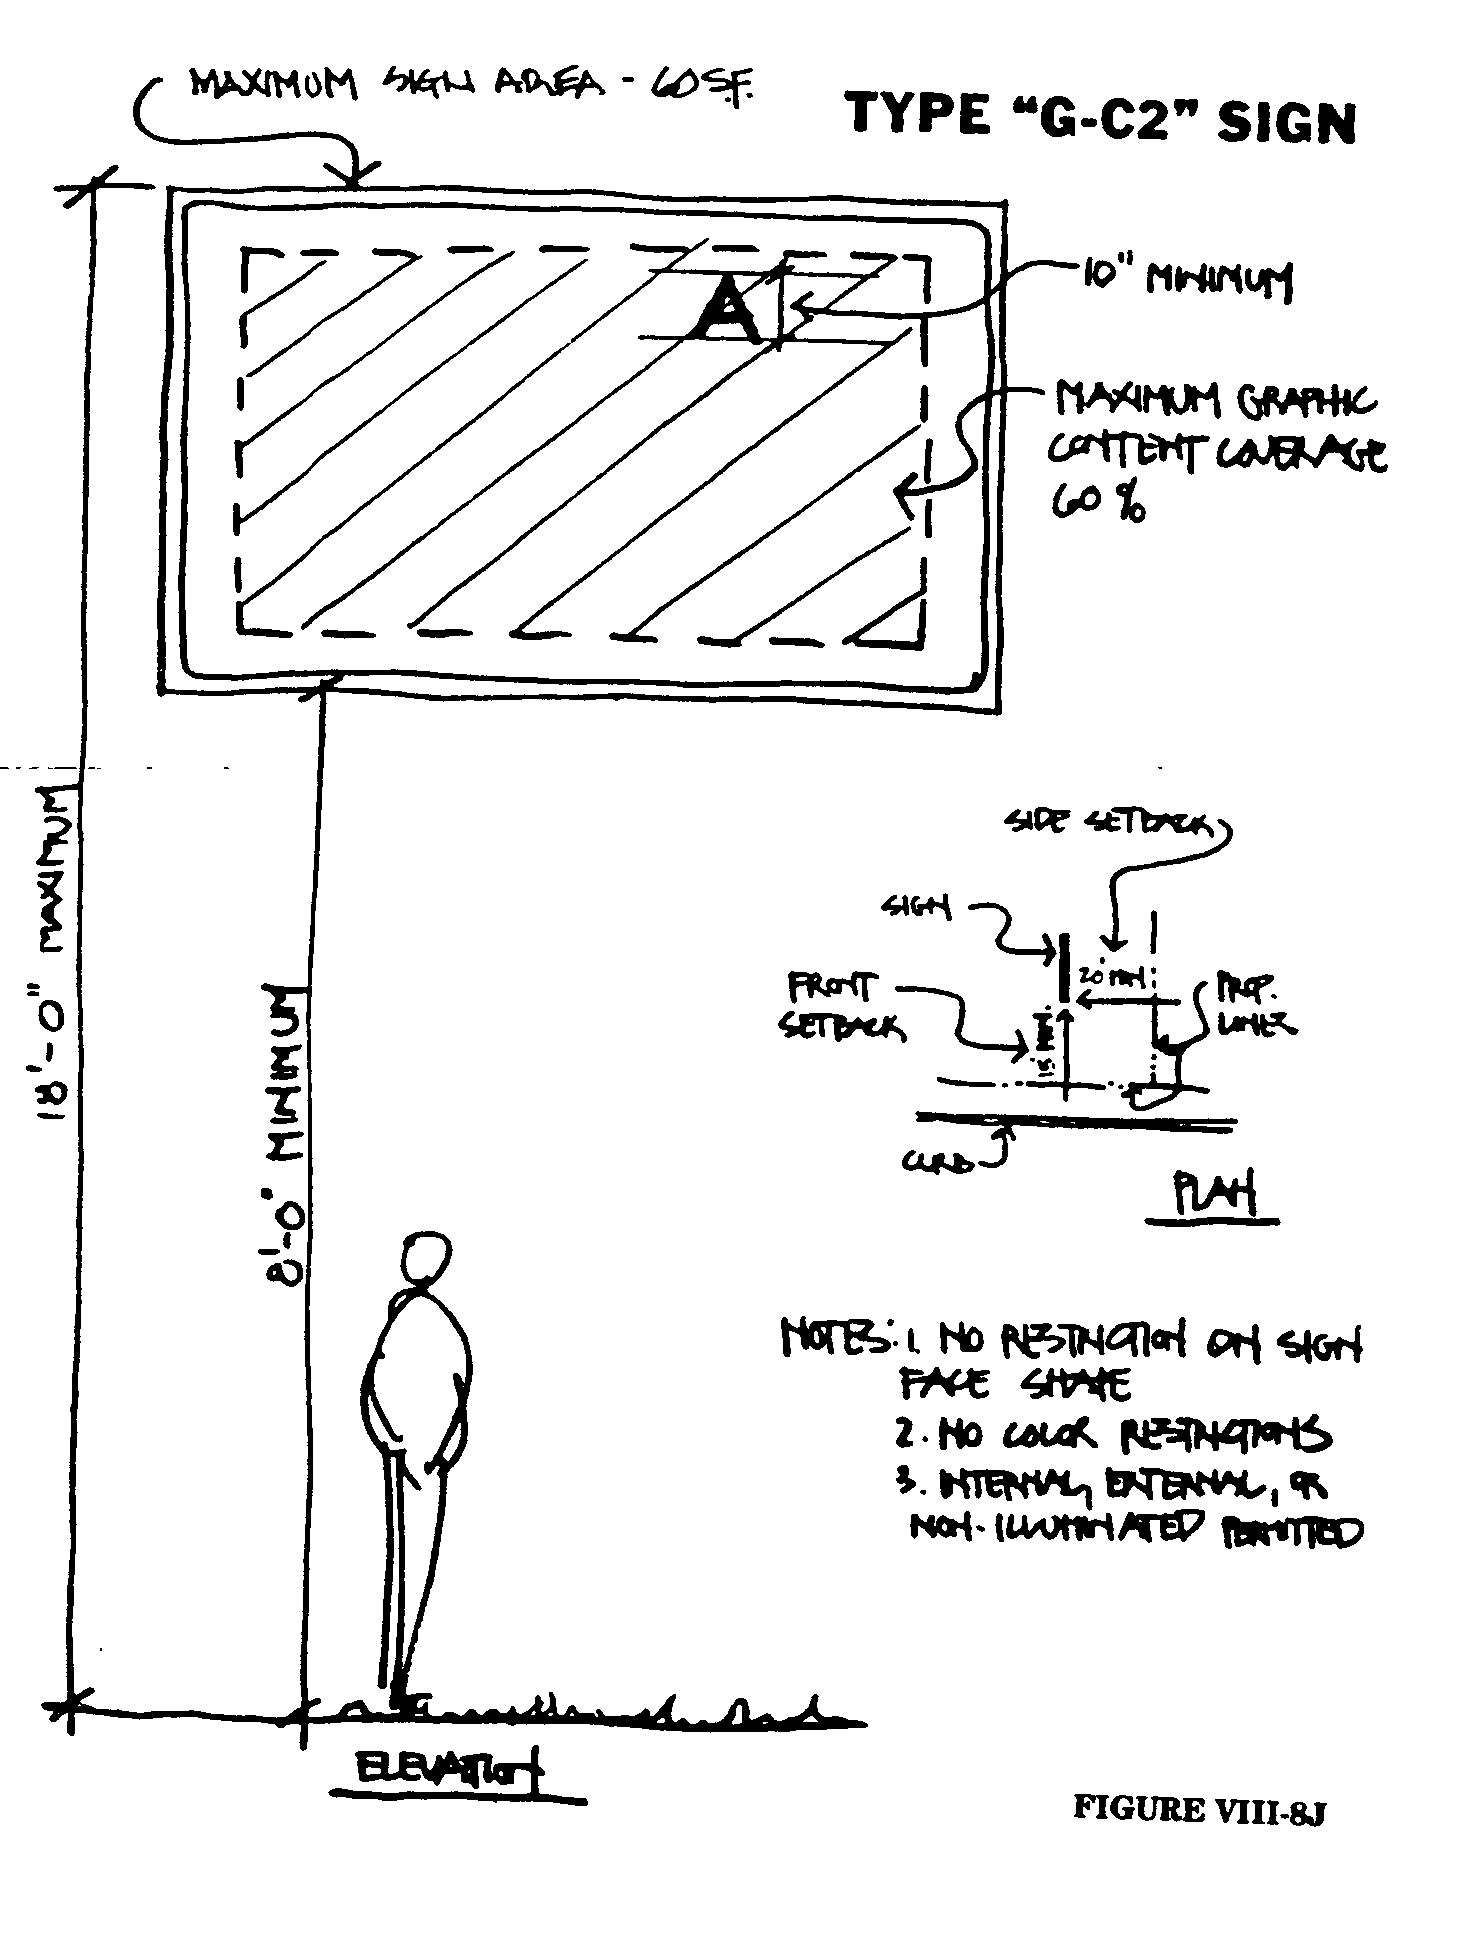 MAXIMUM SIGN AREA - 60 S.F.
TYPE "G-C2" SIGN
10" MINIMUM
A
MAXIMUM GRAPHIC
CONTENT COVERAGE
60 %
18'-0" MAXIMUM
8'-0" MINIMUM
SIDE SETBACK
SIGN
20' MIN.
FRONT
SETBACK
15' MIN.
PROP.
LINES
CURB
PLAN
NOTES: 1. NO RESTRICTION ON SIGN
FACE SHAPE
2. NO COLOR RESTRICTIONS
3. INTERNAL, EXTERNAL, OR
NON-ILLUMINATED PERMITTED
ELEVATION
FIGURE VIII-8J